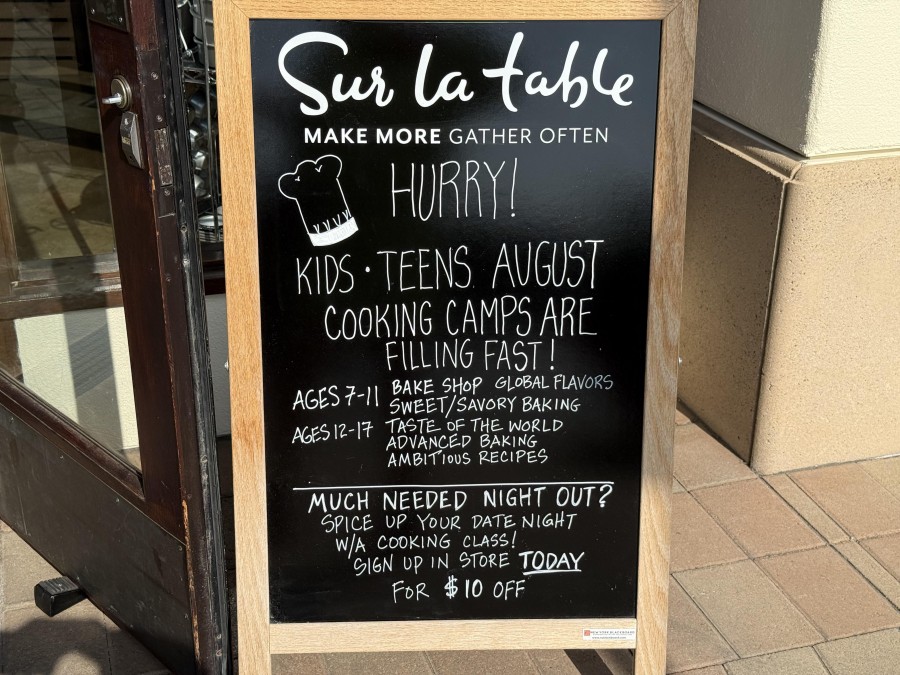 Sur la table
MAKE MORE GATHER OFTEN
HURRY!
KIDS · TEENS AUGUST
COOKING CAMPS ARE
FILLING FAST!
AGES 7-11 BAKE SHOP GLOBAL FLAVORS
SWEET/SAVORY BAKING
AGES 12-17 TASTE OF THE WORLD
ADVANCED BAKING
AMBITIOUS RECIPES
MUCH NEEDED NIGHT OUT?
SPICE UP YOUR DATE NIGHT
W/A COOKING CLASS!
SIGN UP IN STORE TODAY
FOR $10 OFF